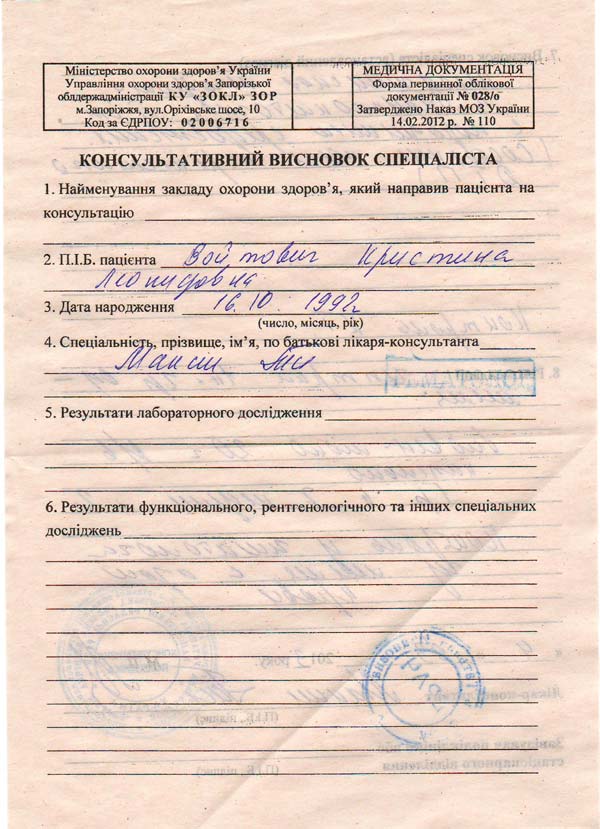 Міністерство охорони здоров'я України
Управління охорони здоров'я Запорізької
облдержадміністрації КУ «ЗОКЛ» ЗОР
м.Запоріжжя, вул.Оріхівське шосе, 10
Код за ЄДРПОУ: 02006716
МЕДИЧНА ДОКУМЕНТАЦІЯ
Форма первинної облікової
документації № 028/о
Затверджено Наказ МОЗ України
14.02.2012 р. № 110
КОНСУЛЬТАТИВНИЙ ВИСНОВОК СПЕЦІАЛІСТА
1. Найменування закладу охорони здоров'я, який направив пацієнта на
консультацію
2. П.І.Б. пацієнта Войтович Кристина
Леонидовна
3. Дата народження 16.10.1992
(число, місяць, рік)
4. Спеціальність, прізвище, ім'я, по батькові лікаря-консультанта
5. Результати лабораторного дослідження
6. Результати функціонального, рентгенологічного та інших спеціальних
досліджень